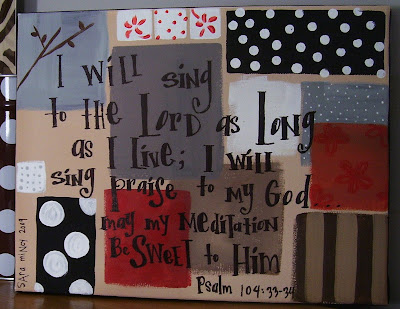 I will sing
to the Lord as Long
as I Live; I will
sing Praise to my God...
may my Meditation
Be Sweet to Him
Psalm 104:33-34
SARA MINER 2009